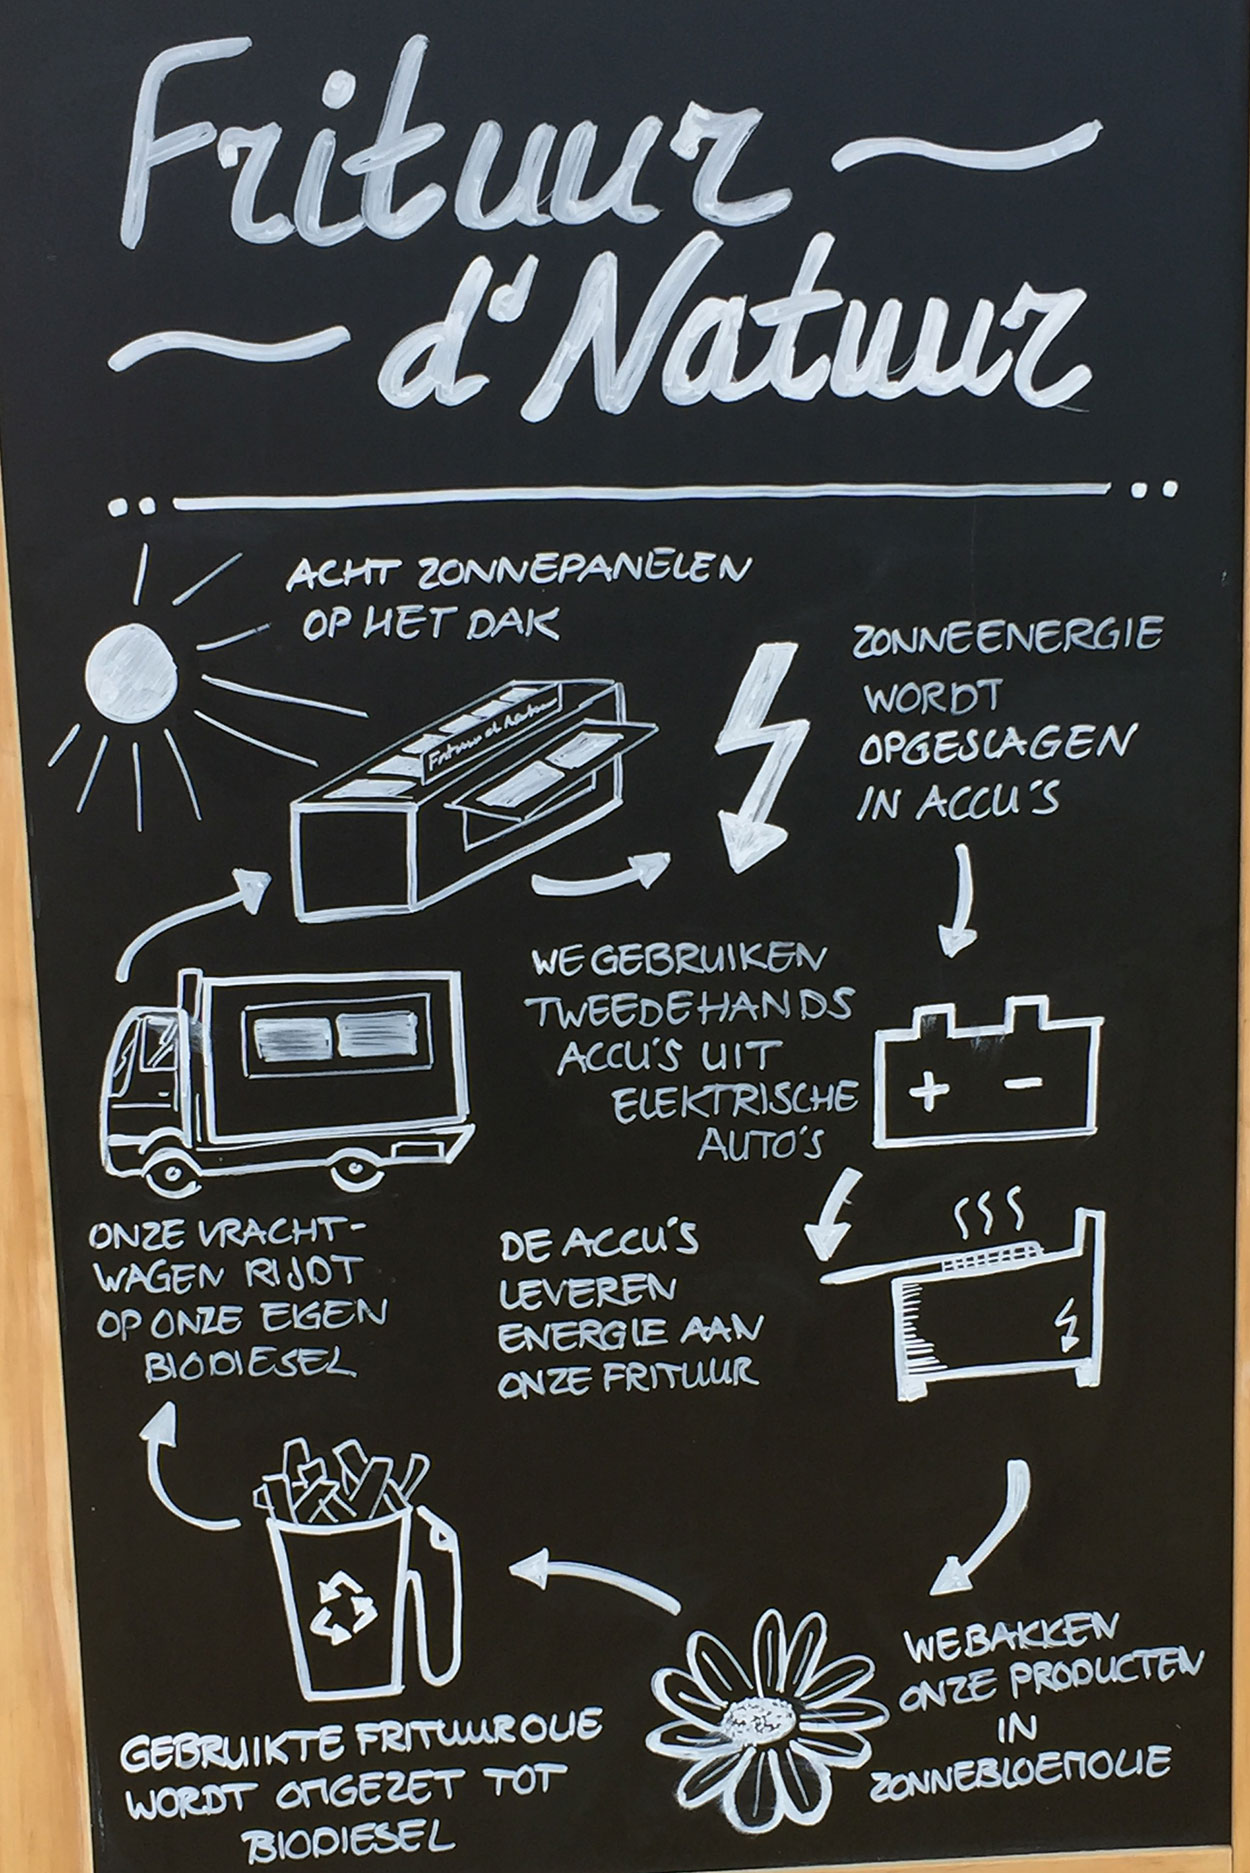 Frituur
d'Natuur
ACHT ZONNEPANELEN
OP HET DAK
ZONNEENERGIE
WORDT
OPGESLAGEN
IN ACCU'S
WE GEBRUIKEN
TWEEDEHANDS
ACCU'S UIT
ELEKTRISCHE
AUTO'S
+ -
DE ACCU'S
LEVEREN
ENERGIE AAN
ONZE FRITUUR
WE BAKKEN
ONZE PRODUCTEN
IN
ZONNEBLOEMOLIE
GEBRUIKTE FRITUUROLIE
WORDT OMGEZET TOT
BIODIESEL
ONZE VRACHT-
WAGEN RIJDT
OP ONZE EIGEN
BIODIESEL